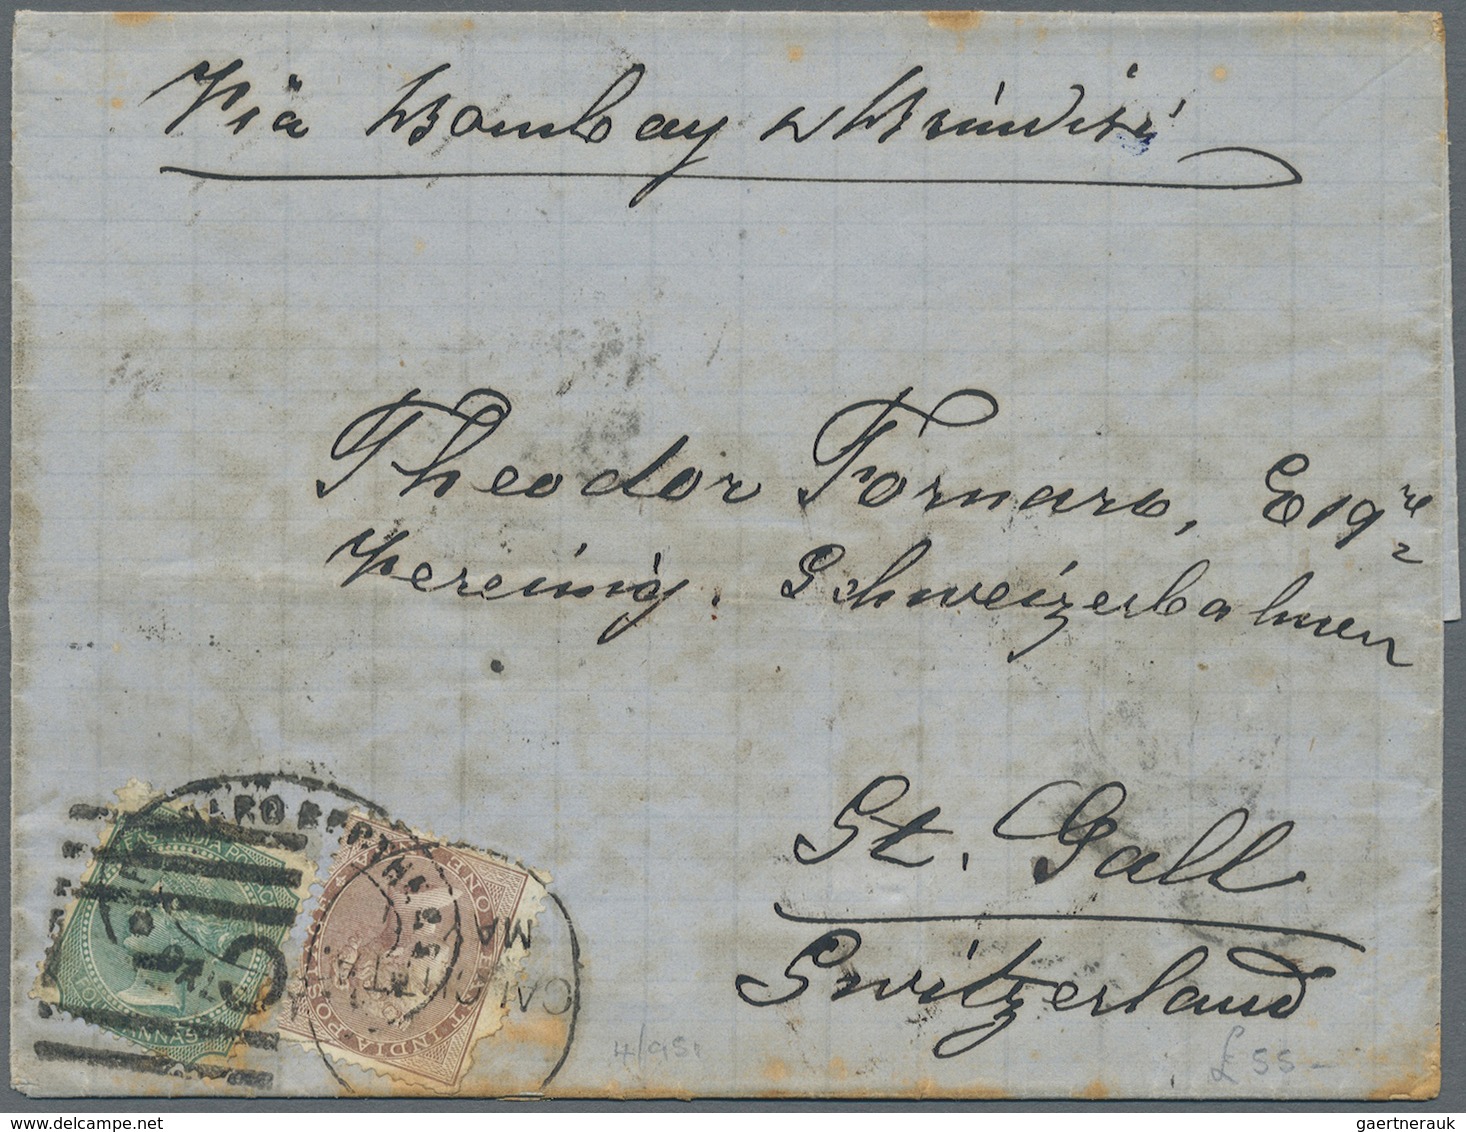 Via Bombay & Brindisi
Theodor Fornaro, Esqre
Vereinig. Schweizerbahnen
St. Gall
Switzerland
EAST INDIA POSTAGE
FOUR ANNAS
ONE ANNA
EAST INDIA POSTAGE
CALCUTTA
MA
C
4/95.
£55-
gaertnerauk